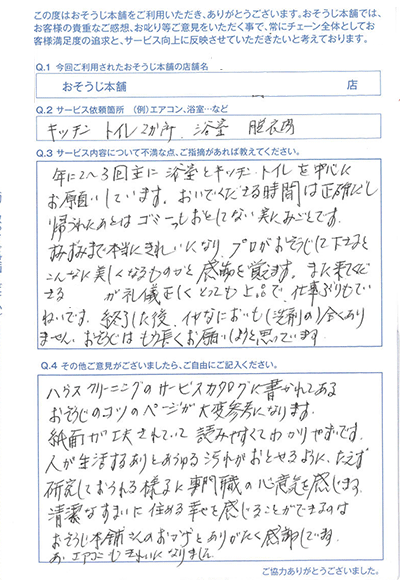 この度はおそうじ本舗をご利用いただき、ありがとうございます。おそうじ本舗では、
お客様の貴重なご感想、お叱り等ご意見をいただく事で、常にチェーン全体としてお
客様満足度の追求と、サービス向上に反映させていただきたいと考えております。
Q.1 今回ご利用されたおそうじ本舗の店舗名
おそうじ本舗 店
Q.2 サービス依頼箇所 (例)エアコン、浴室…など
キッチン トイレ2か所 浴室 脱衣場
Q.3 サービス内容について不満な点、ご指摘があれば教えてください。
年に2〜3回主に浴室とキッチン、トイレを中心に
お願いしています。おいでくださる時間は正確だし
帰られたあとはゴミ一つもおとしてない実にみごとです。
すみずみまで本当にきれいになり、プロがおそうじして下さると
こんなに美しくなるものかと感動を覚えます。また来てくだ
さる が礼儀正しくとっても上品で、仕事ぶりもてい
ねいです。終了した後、イヤなにおいも(洗剤の)全くあり
ません。おそうじはもう長くお願いしようと思っています。
Q.4 その他ご意見がございましたら、ご自由にご記入ください。
ハウスクリーニングのサービスカタログに書かれてある
おそうじのコツのページが大変参考になります。
紙面が工夫されていて読みやすくてわかりやすいです。
人が生活するありとあらゆる汚れがおとせるように、たえず
研究しておられる様子に専門職の心意気を感じます。
清潔なすまいに住める幸せを感じることができるのは
おそうじ本舗さんのおかげとありがたく感謝しています。
エアコンもきれいになりました。
ご協力ありがとうございました。